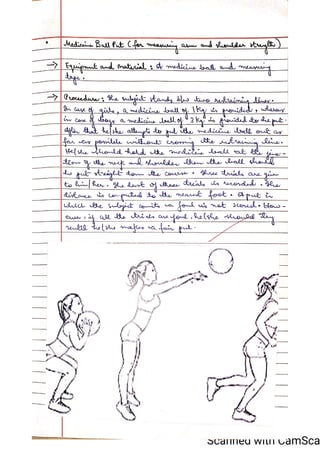 • Medicine Ball Put (for measuring arm and shoulder strength)
→ Equipment and material : A medicine ball and measuring
tape.
→ Procedure : The subject stands b/w two restraining lines.
In case of girls, a medicine ball of 1 Kg is provided, whereas
in case of boys a medicine ball of 3 Kg is provided to the put.
After that he/she attempts to put the medicine ball out as
far as possible without crossing the restraining line.
He/she should hold the medicine ball at the junc-
tion of the neck and shoulder then the ball should
be put straight down the course. Three trials are given
to him/her. The best of three trials is recorded. The
distance is computed to the nearest foot. A put in
which the subject commits a foul is not scored. How-
ever, if all the trials are foul, he/she should try
until he/she makes a fair put.
Scanned with CamSca